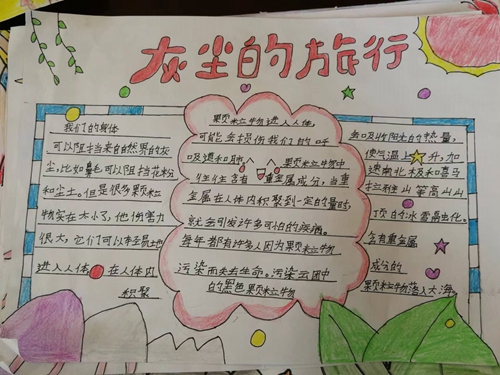 灰尘的旅行
我们的躯体
可以阻挡来自然界的灰
尘,比如鼻毛可以阻挡花粉
和尘土。但是很多颗粒
物实在太小了,他伤害力
很大,它们可以轻易地
进入人体 在人体内
积聚
颗粒物进入人体,
可能会损伤我们的呼
吸道和肺 颗粒物中
往往含有 重金属成分,当重
金属在人体内积聚到一定的量时,
就会引发许多可怕的疾病。
每年都有许多人因为颗粒物
污染而失去生命。污染云团中
的黑色颗粒物
会吸收阳光的热量,
使气温上升,加
速南北极和喜马
拉雅山等高山山
顶的冰雪融化。
含有重金属
成分的
颗粒物落入大海